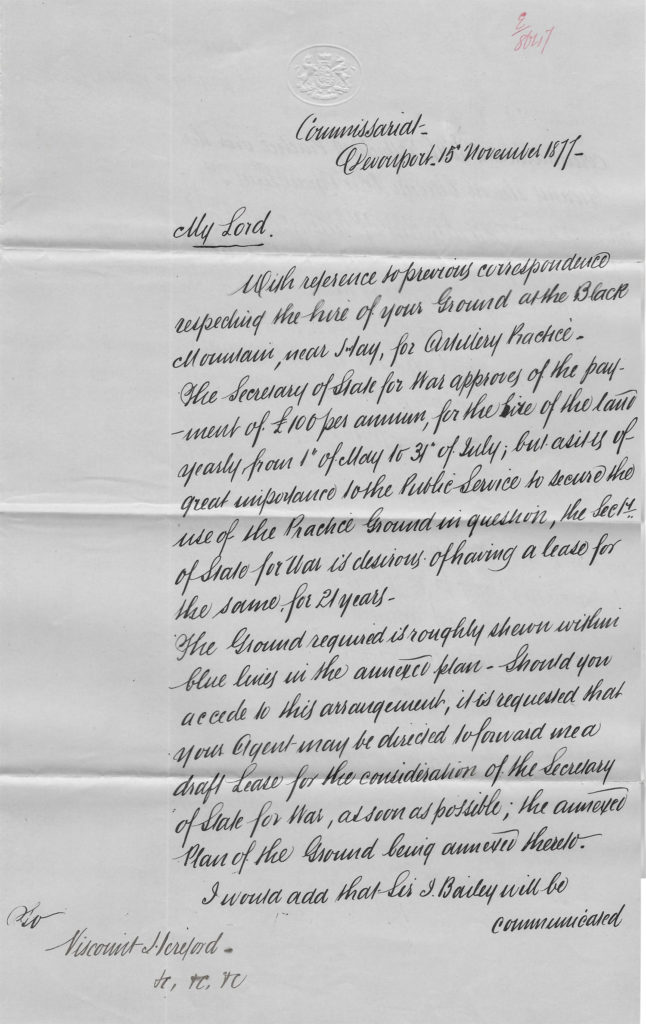 Commissariat
Devonport 15" November 1877
My Lord.
With reference to previous correspondence
respecting the hire of your Ground at the Black
Mountain, near Hay, for Artillery Practice-
The Secretary of State for War approves of the pay-
-ment of £100 per annum, for the hire of the land
yearly from 1st of May to 31st of July; but as it is of
great importance to the Public Service to secure the
use of the Practice Ground in question, the Secty.
of State for War is desirous of having a lease for
the same, for 21 years-
The Ground required is roughly shewn within
blue lines in the annexed plan- Should you
accede to this arrangement, it is requested that
your Agent may be directed to forward me a
draft Lease for the consideration of the Secretary
of State for War, as soon as possible; the annexed
Plan of the Ground being annexed thereto.
I would add that Sir J. Bailey will be
communicated
To
Viscount Hereford-
&c, &c, &c